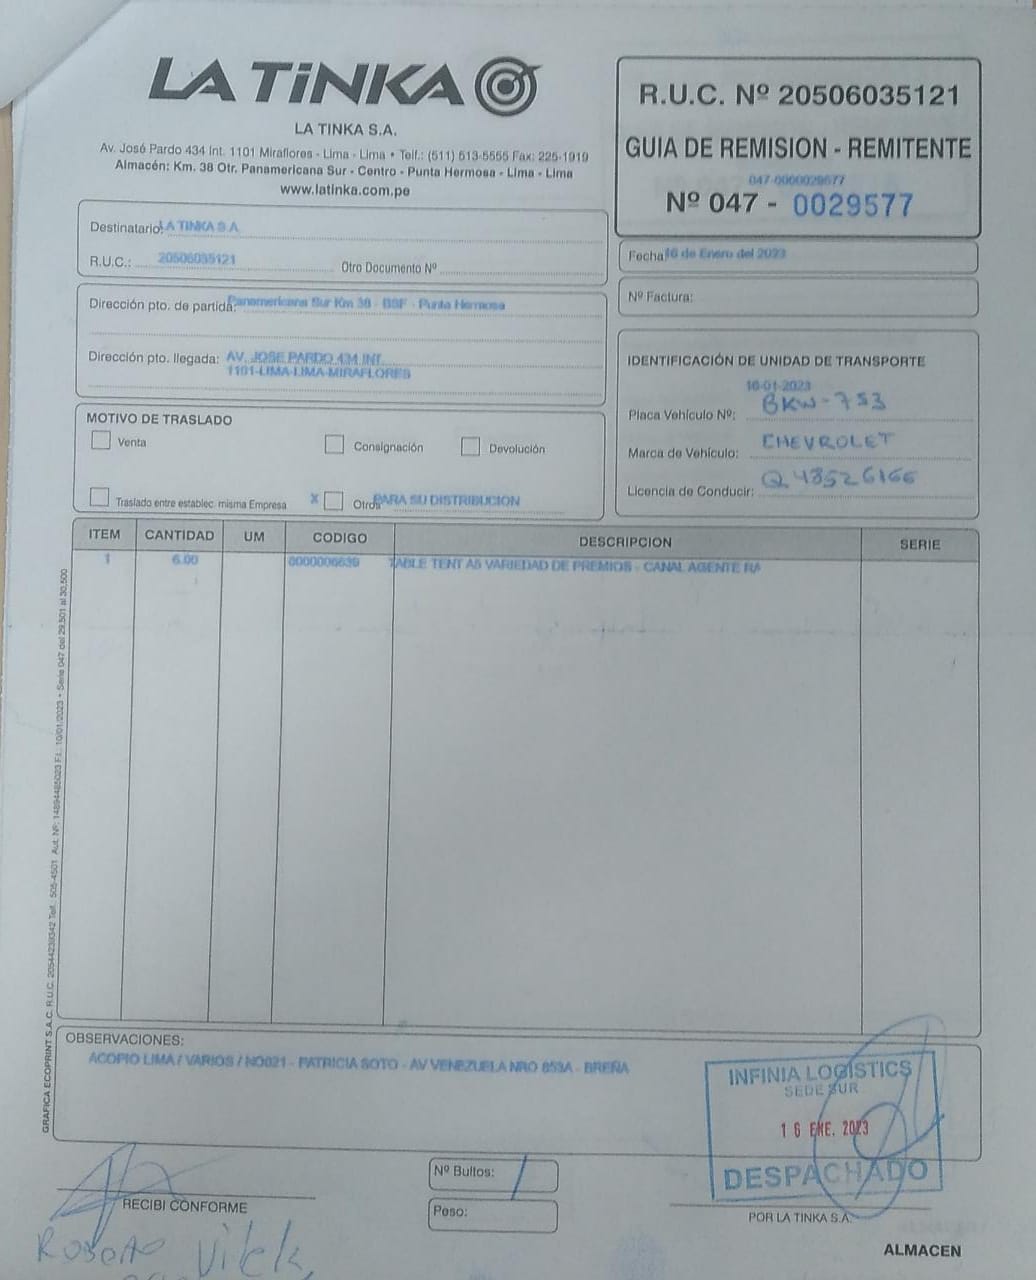 LA TiNKA
LA TINKA S.A.
Av. José Pardo 434 Int. 1101 Miraflores - Lima - Lima • Telf.: (511) 513-5555 Fax: 225-1919
Almacén: Km. 38 Otr. Panamericana Sur - Centro - Punta Hermosa - Lima - Lima
www.latinka.com.pe
R.U.C. Nº 20506035121
GUIA DE REMISION - REMITENTE
047-0000029577
Nº 047 - 0029577
Destinatario: LA TINKA S.A.
R.U.C.: 20506035121 Otro Documento Nº
Fecha 16 de Enero del 2023
Nº Factura:
Dirección pto. de partida: Panamericana Sur Km 38 - BSF - Punta Hermosa
Dirección pto. llegada: AV. JOSE PARDO 434 INT.
1101-LIMA-LIMA-MIRAFLORES
IDENTIFICACIÓN DE UNIDAD DE TRANSPORTE
16-01-2023
Placa Vehículo Nº: BKW-753
Marca de Vehículo: CHEVROLET
Licencia de Conducir: Q48526166
MOTIVO DE TRASLADO
Venta Consignación Devolución
Traslado entre establec. misma Empresa X Otros PARA SU DISTRIBUCION
ITEM CANTIDAD UM CODIGO DESCRIPCION SERIE
1 6.00 0000006639 TABLE TENT A5 VARIEDAD DE PREMIOS - CANAL AGENTE RA
GRAFICA ECOPRINT S.A.C. R.U.C. 20544239342 Telf. 505-4501 Aut. Nº: 14894485023 F.I.: 10/01/2023 • Serie 047 del 29,501 al 30,500
OBSERVACIONES:
ACOPIO LIMA / VARIOS / NO821 - PATRICIA SOTO - AV VENEZUELA NRO 853A - BREÑA
INFINIA LOGISTICS
SEDE SUR
16 ENE. 2023
DESPACHADO
Nº Bultos: 1
Peso:
RECIBI CONFORME
POR LA TINKA S.A.
Roberto Vilela
ALMACEN